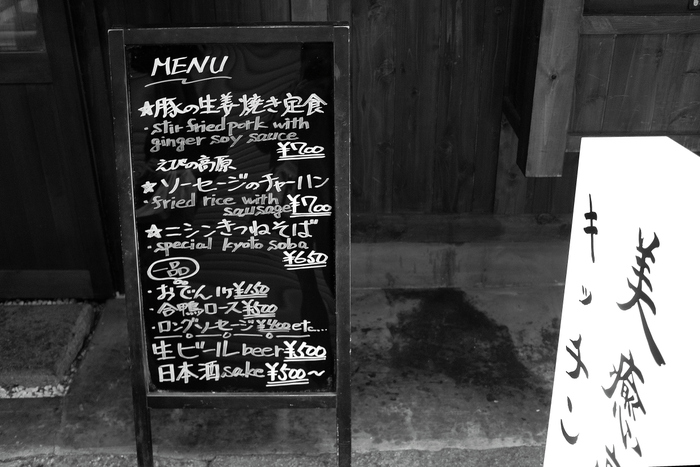 MENU
★豚の生姜焼き定食
・stir fried pork with
ginger soy sauce
¥700
えびの高原
★ソーセージのチャーハン
・fried rice with
sausage ¥700
★ニシンきつねそば
・special kyoto soba
¥650
一品
・おでん 1ケ ¥150
・合鴨ロース ¥500
・ロングソーセージ ¥400 etc....
生ビール beer ¥500
日本酒 sake ¥500～
キッチン
美癒